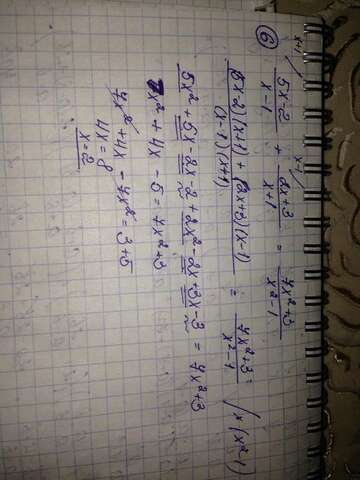 x+1 x-1
⑥ (5x-2)/(x-1) + (2x+3)/(x+1) = (7x²+3)/(x²-1)
((5x-2)(x+1)+(2x+3)(x-1))/((x-1)(x+1)) = (7x²+3)/(x²-1) / × (x²-1)
5x²+5x-2x-2+2x²-2x+3x-3 = 7x²+3
7x²+4x-5=7x²+3
7x²+4x-7x²=3+5
4x=8
x=2